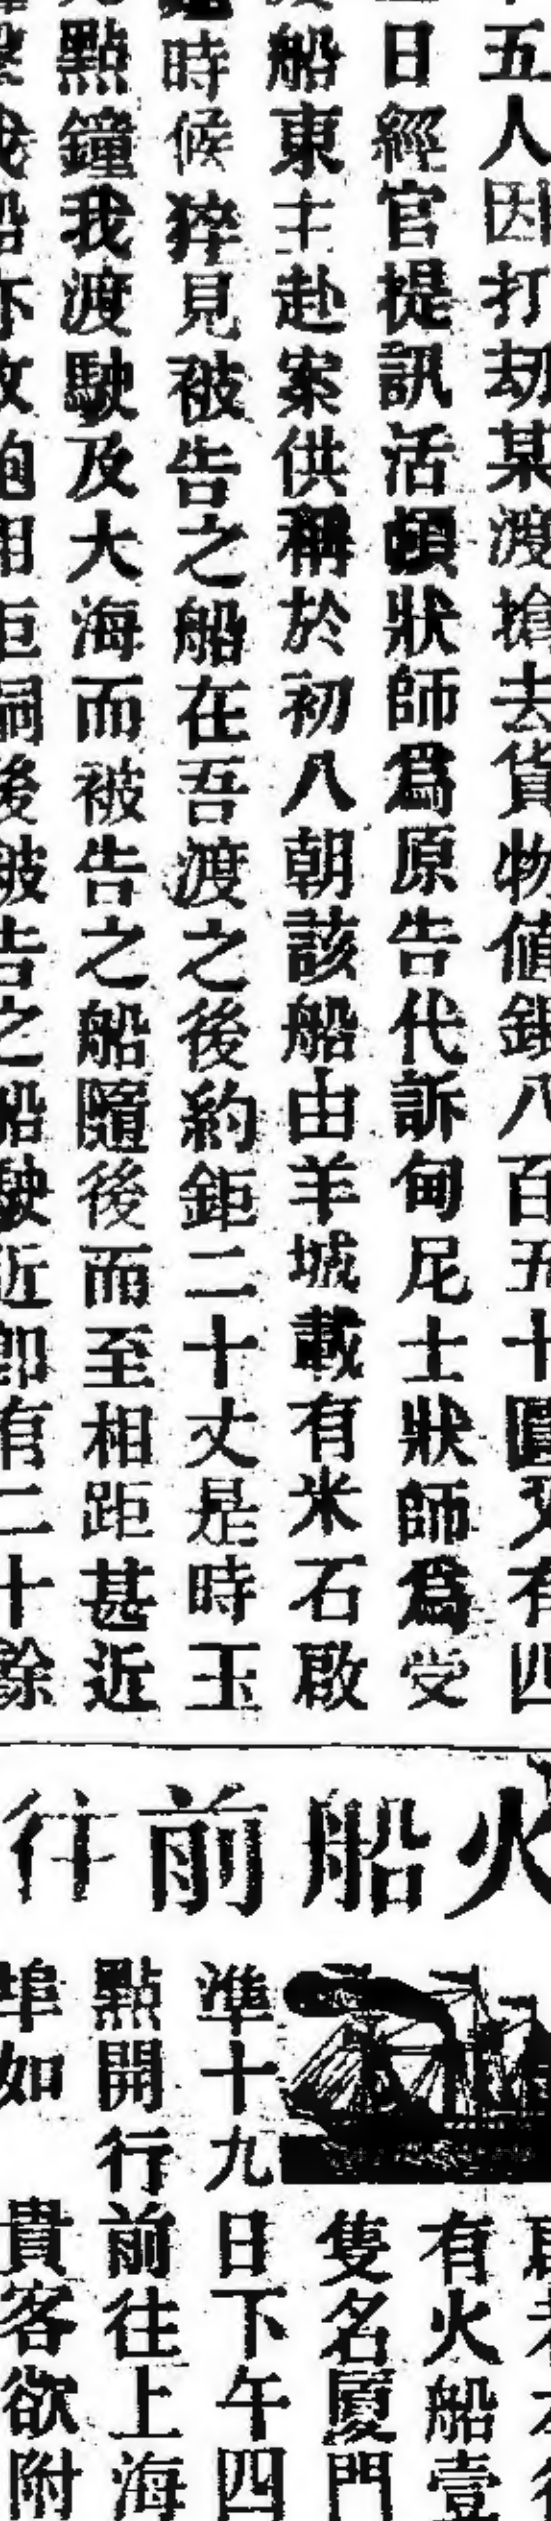 五人因打劫某渡搶去貨物値銀八百五十圓又有四
日經官提訊活頓狀師爲原告代訴甸尼士狀師爲受
船東主赴案供稱於初八朝該船由羊城載有米石啟
時候猝見被告之船在吾渡之後約鉅二十丈是時玉
點鐘我渡駛及大海而被告之船隨後而至相距甚近
船亦放炮相拒嗣後被告之船駛近卽有二十餘
火船前往
有火船壹
隻名廈門
準十九日下午四
點開行前往上海
埠如 貴客欲附